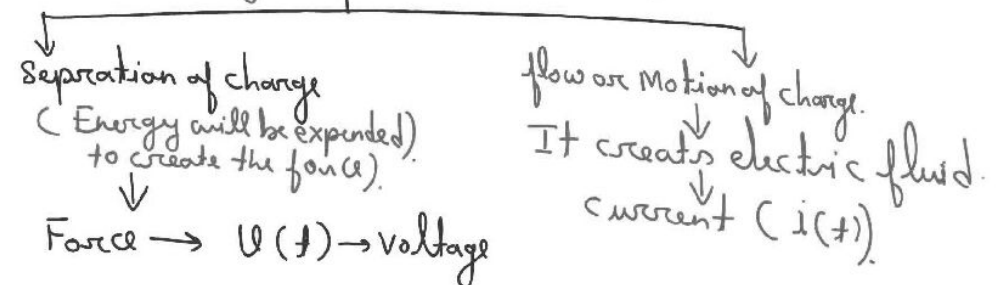 Sepration of charge
( Energy will be expended)
to create the force).
Force → V(t) → voltage
flow or Motion of charge.
It creats electric fluid.
current ( i(t)).